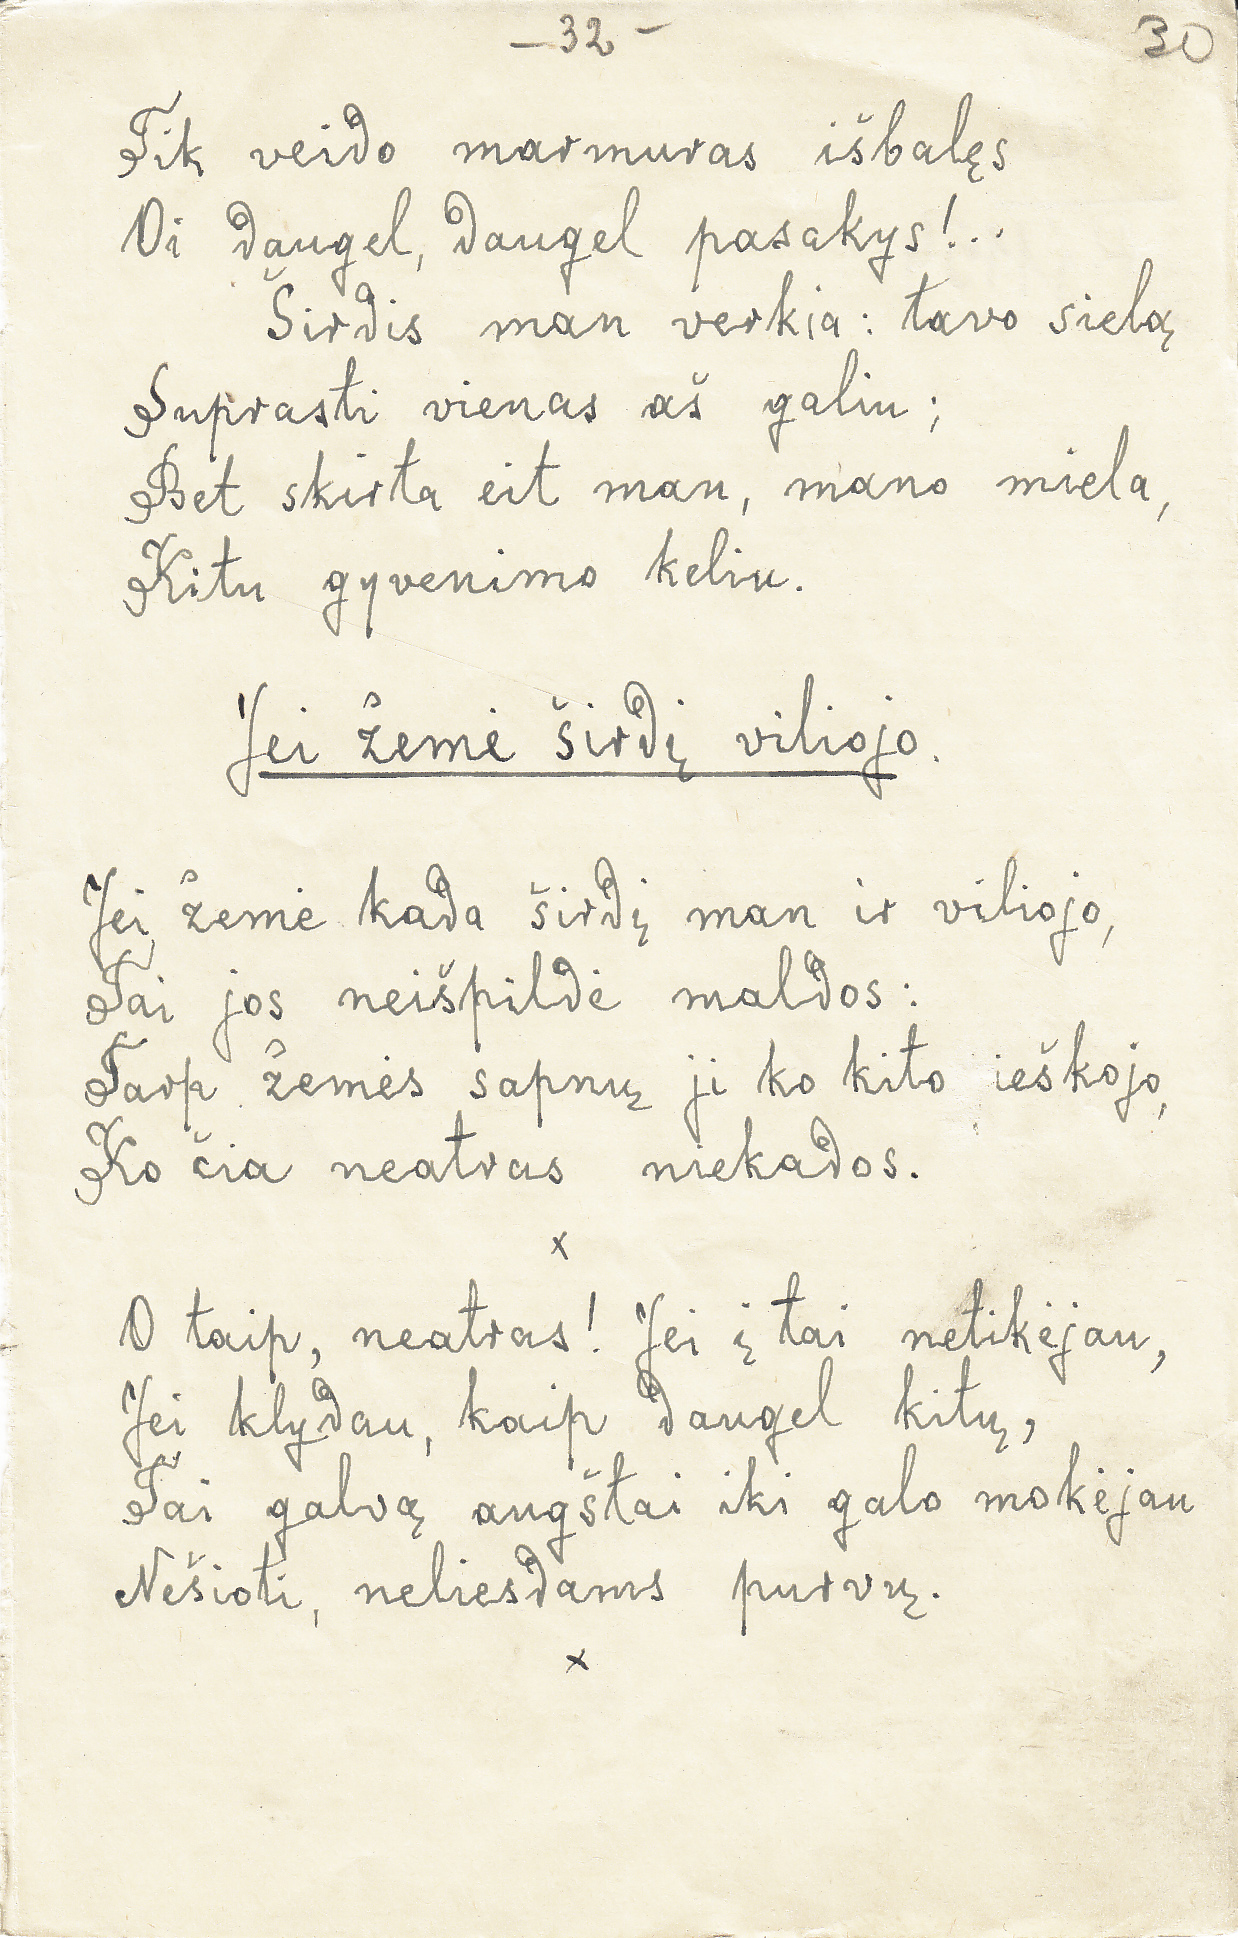 – 32 –
30
Tik veido marmuras išbalęs
Oi daugel, daugel pasakys!..
Širdis man verkia: tavo sielą
Suprasti vienas aš galiu;
Bet skirta eit man, mano miela,
Kitu gyvenimo keliu.
Jei žemė širdį viliojo.
Jei žemė kada širdį man ir viliojo,
Tai jos neišpildė maldos:
Tarp žemės sapnų ji ko kito ieškojo,
Ko čia neatras niekados.
x
O taip, neatras! Jei į tai netikėjau,
Jei klydau, kaip daugel kitų,
Tai galvą augštai iki galo mokėjau
Nešioti, neliesdams purvų.
x